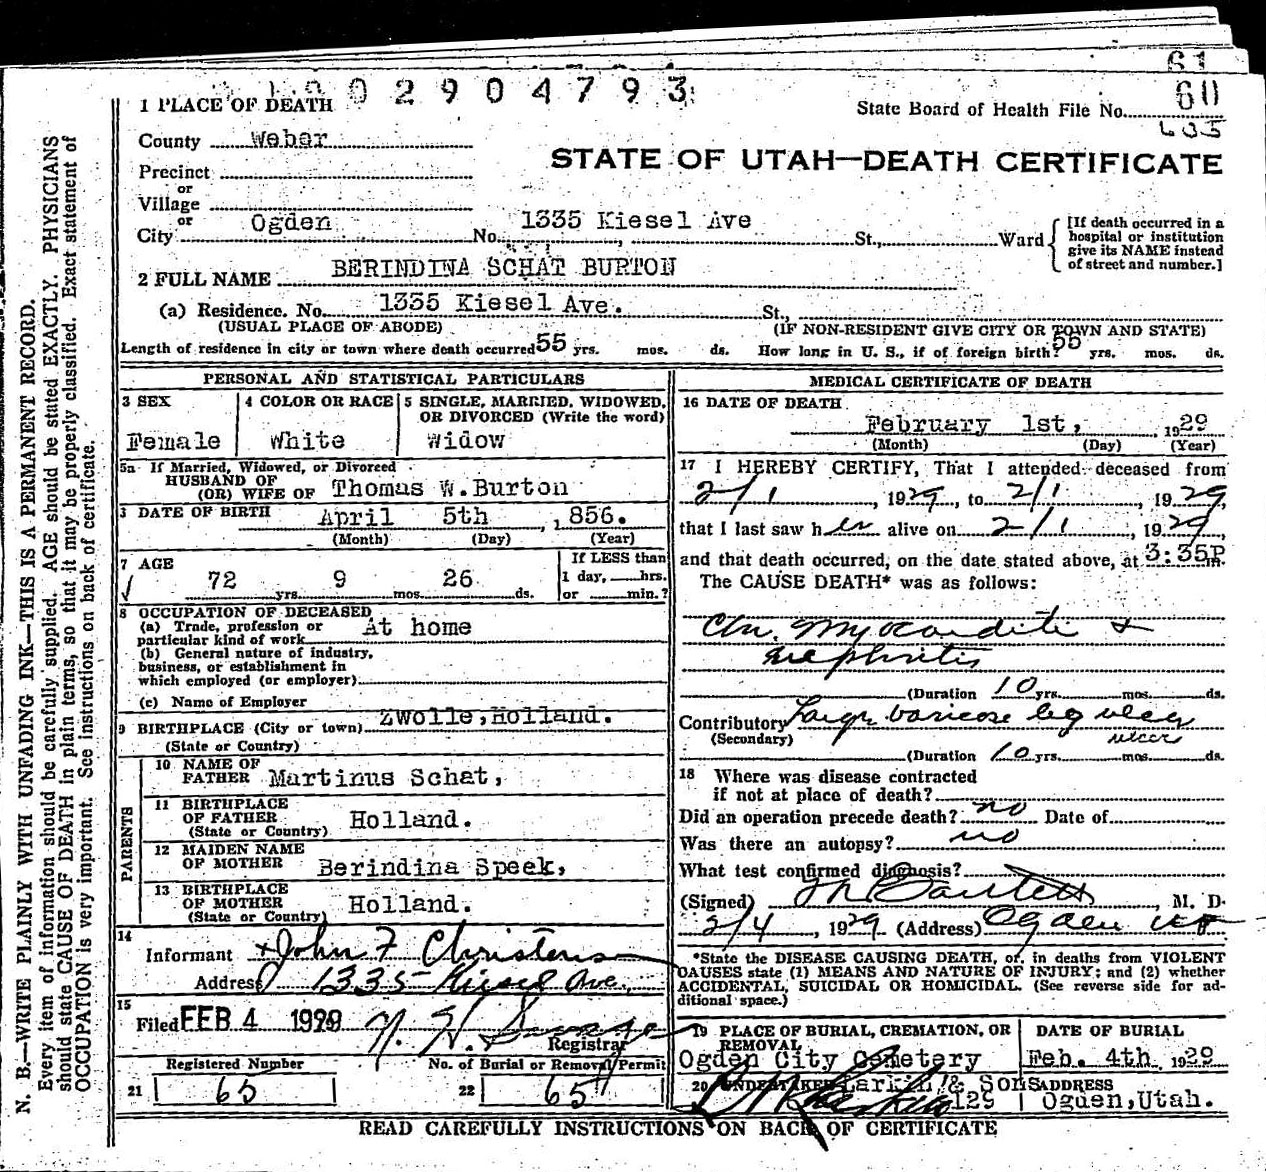 61
02904793
1 PLACE OF DEATH
State Board of Health File No. 60
635
County Weber
STATE OF UTAH—DEATH CERTIFICATE
Precinct
or
Village
or
City Ogden No. 1335 Kiesel Ave St., Ward
[If death occurred in a hospital or institution give its NAME instead of street and number.]
2 FULL NAME BERINDINA SCHAT BURTON
(a) Residence. No. 1335 Kiesel Ave. St.,
(USUAL PLACE OF ABODE) (IF NON-RESIDENT GIVE CITY OR TOWN AND STATE)
Length of residence in city or town where death occurred 55 yrs. mos. ds. How long in U. S., if of foreign birth? 55 yrs. mos. ds.
PERSONAL AND STATISTICAL PARTICULARS
3 SEX
Female
4 COLOR OR RACE
White
5 SINGLE, MARRIED, WIDOWED,
OR DIVORCED (Write the word)
Widow
5a If Married, Widowed, or Divorced
HUSBAND OF
(OR) WIFE OF Thomas W.Burton
DATE OF BIRTH April 5th , 1856.
(Month) (Day) (Year)
7 AGE
72 yrs. 9 mos. 26 ds.
If LESS than
1 day, hrs.
or min.?
8 OCCUPATION OF DECEASED
(a) Trade, profession or
particular kind of work At home
(b) General nature of industry,
business, or establishment in
which employed (or employer)
(c) Name of Employer
9 BIRTHPLACE (City or town) Zwolle,Holland.
(State or Country)
PARENTS
10 NAME OF
FATHER Martinus Schat,
11 BIRTHPLACE
OF FATHER
(State or Country) Holland.
12 MAIDEN NAME
OF MOTHER Berindina Speek,
13 BIRTHPLACE
OF MOTHER
(State or Country) Holland.
14
Informant John F Christensen
Address 1335 Kiesel Ave.
15
Filed FEB 4 1929
Registrar
Registered Number
21 65
No. of Burial or Removal Permit
22 65
MEDICAL CERTIFICATE OF DEATH
16 DATE OF DEATH
February 1st, 1929
(Month) (Day) (Year)
17 I HEREBY CERTIFY, That I attended deceased from
2/1, 1929, to 2/1 1929,
that I last saw her alive on 2/1, 1929,
and that death occurred, on the date stated above, at 3:35P m.
The CAUSE DEATH* was as follows:
Chr. Myocarditis &
nephritis
(Duration 10 yrs. mos. ds.
Contributory Large varicose leg ulcer
(Secondary) ulcer
(Duration 10 yrs. mos. ds.
18 Where was disease contracted
if not at place of death?
Did an operation precede death? no Date of
Was there an autopsy? no
What test confirmed diagnosis?
(Signed) Bartlett, M. D.
2/4, 1929 (Address) Ogden Ut
*State the DISEASE CAUSING DEATH, or, in deaths from VIOLENT
CAUSES state (1) MEANS AND NATURE OF INJURY; and (2) whether
ACCIDENTAL, SUICIDAL OR HOMICIDAL. (See reverse side for ad-
ditional space.)
19 PLACE OF BURIAL, CREMATION, OR
REMOVAL
Ogden City Cemetery
DATE OF BURIAL
Feb. 4th, 1929
20 UNDERTAKER Larkin & Sons
129
ADDRESS
Ogden,Utah.
READ CAREFULLY INSTRUCTIONS ON BACK OF CERTIFICATE
N. B.—WRITE PLAINLY WITH UNFADING INK—THIS IS A PERMANENT RECORD.
Every item of information should be carefully supplied. AGE should be stated EXACTLY. PHYSICIANS
should state CAUSE OF DEATH in plain terms, so that it may be properly classified. Exact statement of
OCCUPATION is very important. See instructions on back of certificate.